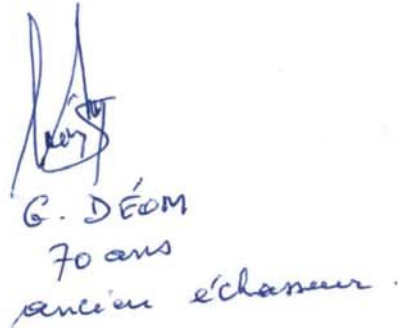 G. DÉOM
70 ans
ancien échasseur.